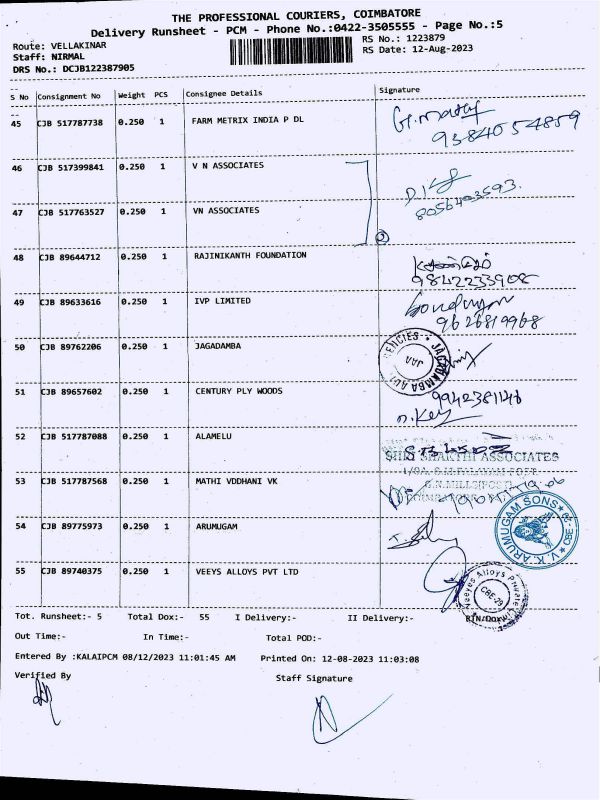 THE PROFESSIONAL COURIERS, COIMBATORE
Delivery Runsheet - PCM - Phone No.:0422-3505555 - Page No.:5
Route: VELLAKINAR
RS No.: 1223879
Staff: NIRMAL
RS Date: 12-Aug-2023
DRS No.: DCJB122387905
S No Consignment No Weight PCS Consignee Details Signature
45 CJB 517787738 0.250 1 FARM METRIX INDIA P DL
9384054859
46 CJB 517399841 0.250 1 V N ASSOCIATES
8056403593.
47 CJB 517763527 0.250 1 VN ASSOCIATES
48 CJB 89644712 0.250 1 RAJINIKANTH FOUNDATION
9842233908
49 CJB 89633616 0.250 1 IVP LIMITED
9626819968
50 CJB 89762206 0.250 1 JAGADAMBA
JAGADAMBA AGENCIES
51 CJB 89657602 0.250 1 CENTURY PLY WOODS
9942381146
52 CJB 517787088 0.250 1 ALAMELU
SHRI SHAKTHI ASSOCIATES
53 CJB 517787568 0.250 1 MATHI VDDHANI VK
54 CJB 89775973 0.250 1 ARUMUGAM
V.K. ARUMUGAM SONS CBE
55 CJB 89740375 0.250 1 VEEYS ALLOYS PVT LTD
Veeyes Alloys Private
CBE-29
Tot. Runsheet:- 5 Total Dox:- 55 I Delivery:- II Delivery:- RTN/Dox:-
Out Time:- In Time:- Total POD:-
Entered By :KALAIPCM 08/12/2023 11:01:45 AM Printed On: 12-08-2023 11:03:08
Verified By Staff Signature